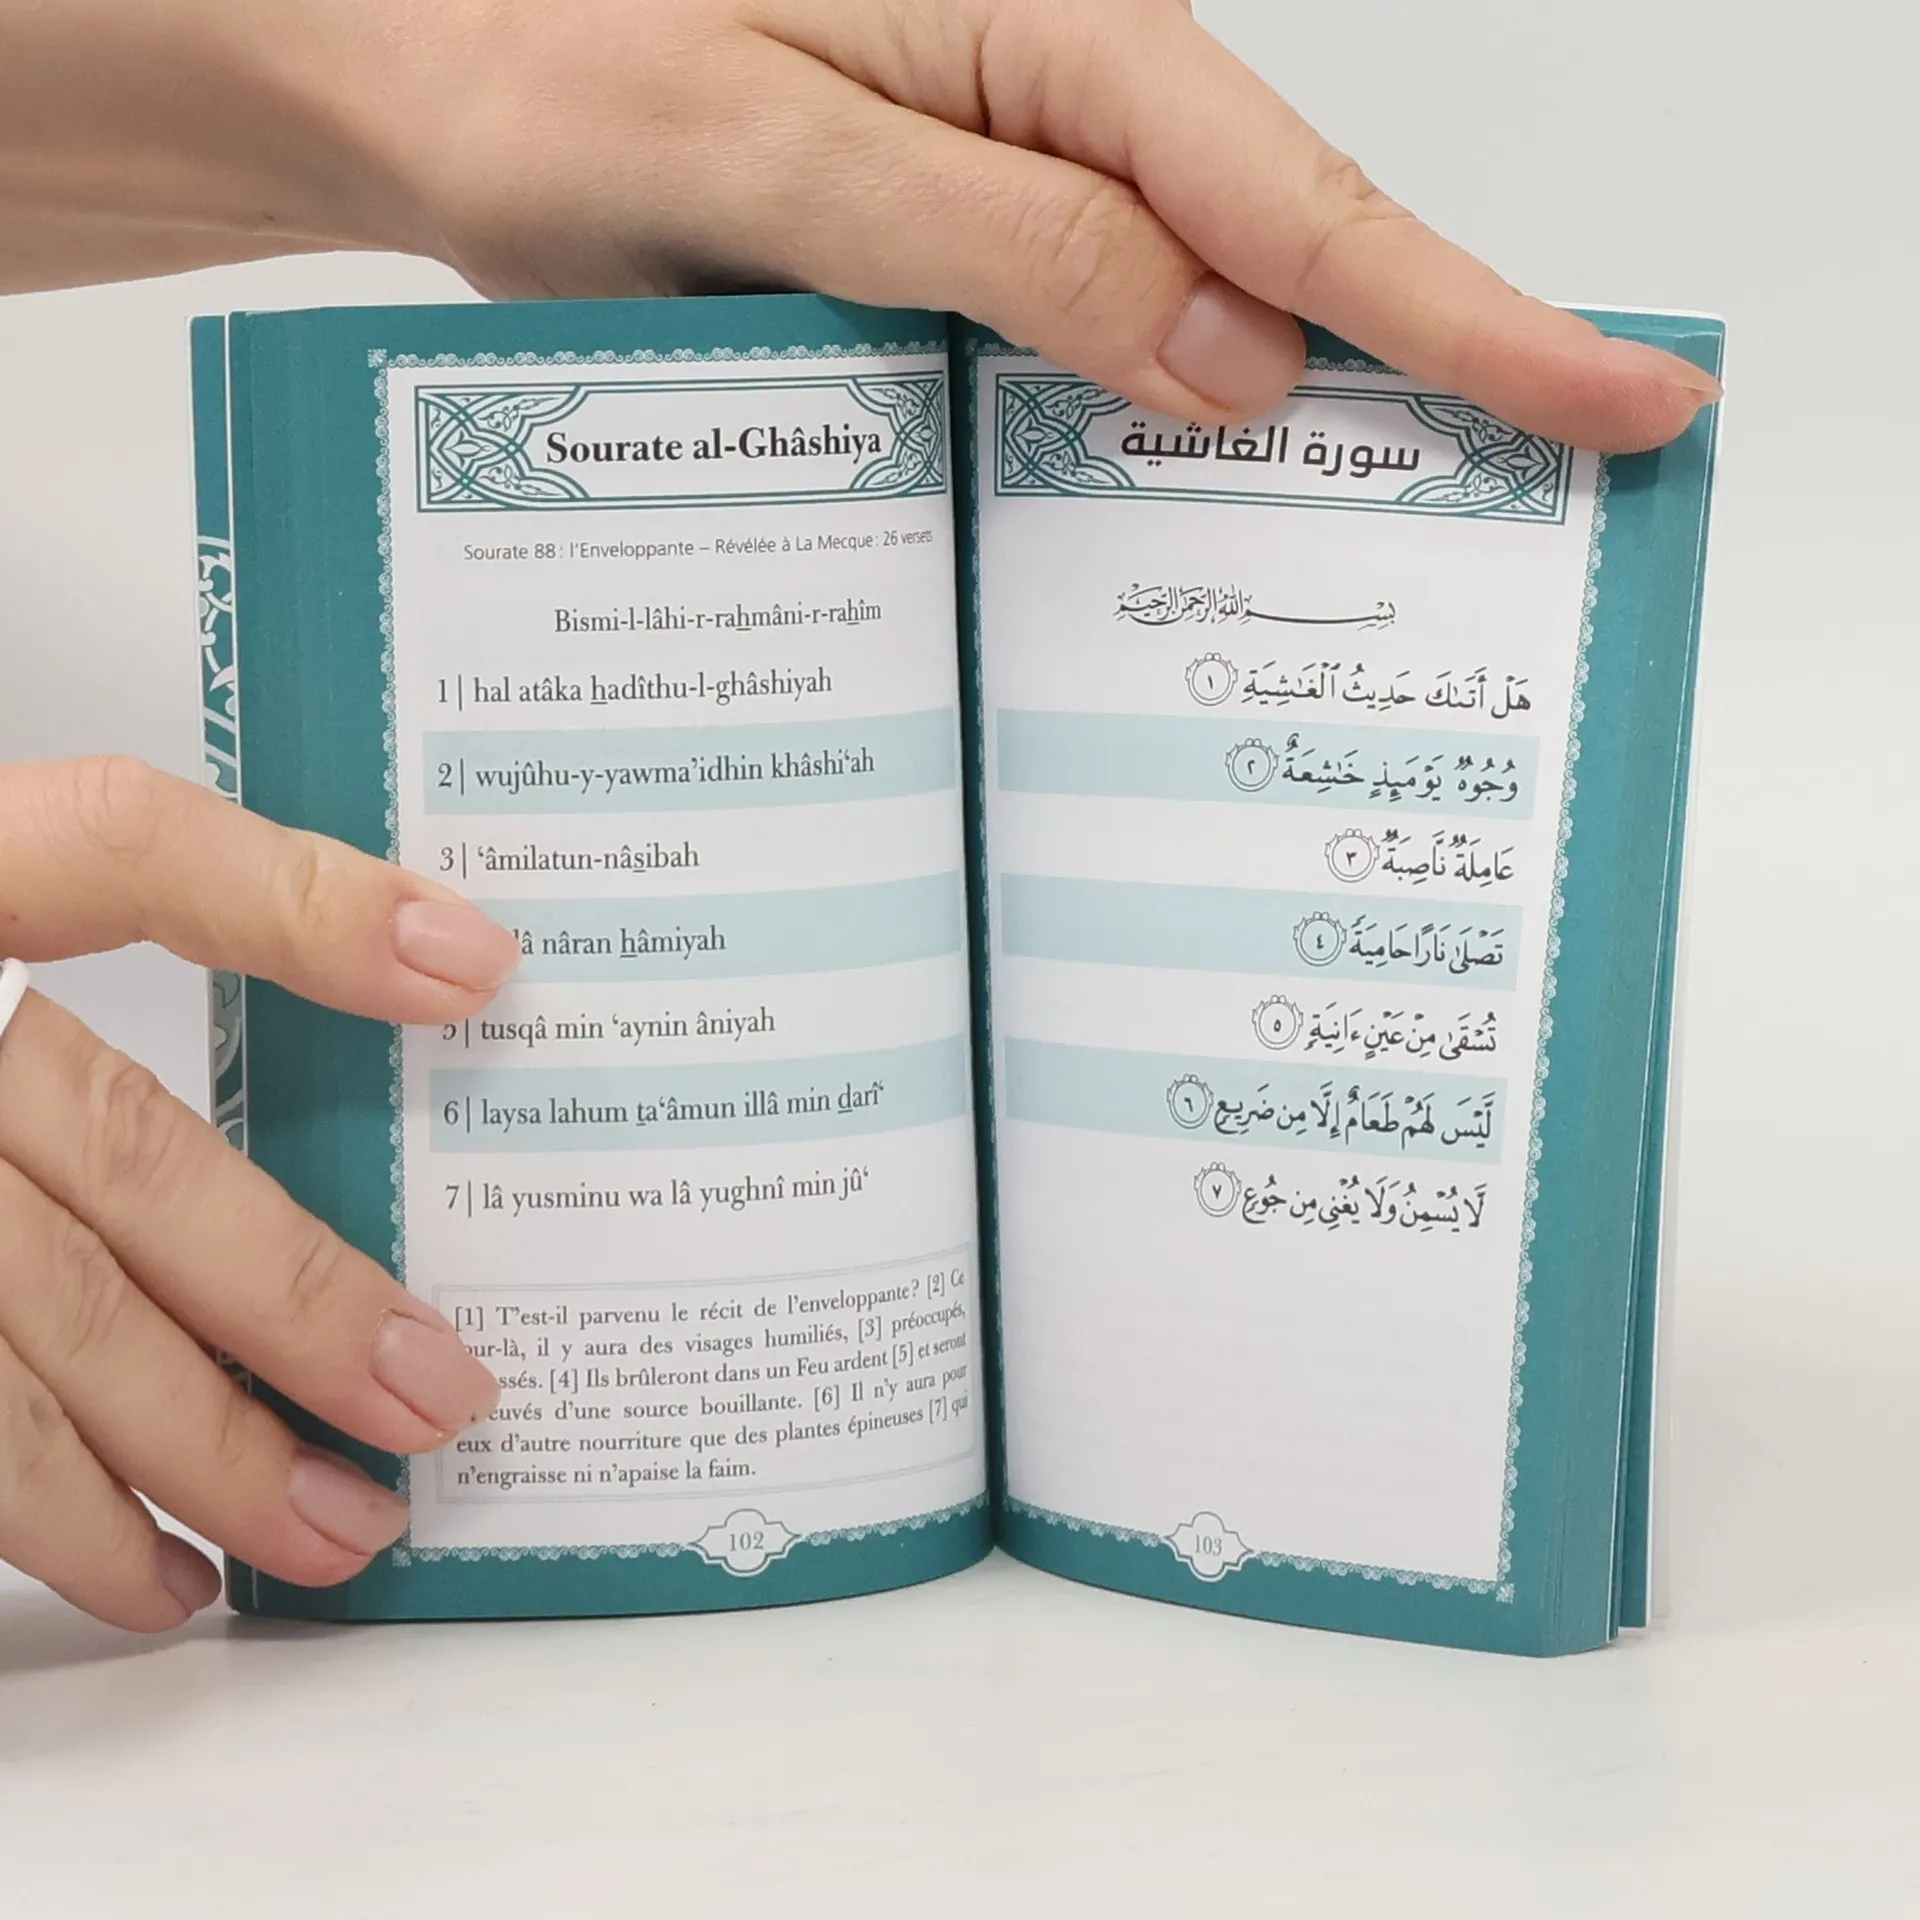 Sourate al-Ghâshiya
Sourate 88 : l'Enveloppante – Révélée à La Mecque : 26 versets
Bismi-l-lâhi-r-rahmâni-r-rahîm
1| hal atâka hadîthu-l-ghâshiyah
2| wujûhu-y-yawma’idhin khâshi‘ah
3| ‘âmilatun-nâsibah
nâran hâmiyah
5| tusqâ min ‘aynin âniyah
6| laysa lahum ta‘âmun illâ min darî‘
7| lâ yusminu wa lâ yughnî min jû‘
[1] T’est-il parvenu le récit de l’enveloppante ? [2] Ce
il y aura des visages humiliés, [3] préoccupés,
[4] Ils brûleront dans un Feu ardent [5] et seront
d’une source bouillante. [6] Il n’y aura pour
eux d’autre nourriture que des plantes épineuses [7] qui
n’engraisse ni n’apaise la faim.
102
سورة الغاشية
بِسْمِ اللَّهِ الرَّحْمَٰنِ الرَّحِيمِ
هَلْ أَتَىٰكَ حَدِيثُ ٱلْغَٰشِيَةِ ١
وُجُوهٌ يَوْمَئِذٍ خَٰشِعَةٌ ٢
عَامِلَةٌ نَّاصِبَةٌ ٣
تَصْلَىٰ نَارًا حَامِيَةً ٤
تُسْقَىٰ مِنْ عَيْنٍ ءَانِيَةٍ ٥
لَّيْسَ لَهُمْ طَعَامٌ إِلَّا مِن ضَرِيعٍ ٦
لَّا يُسْمِنُ وَلَا يُغْنِى مِن جُوعٍ ٧
103